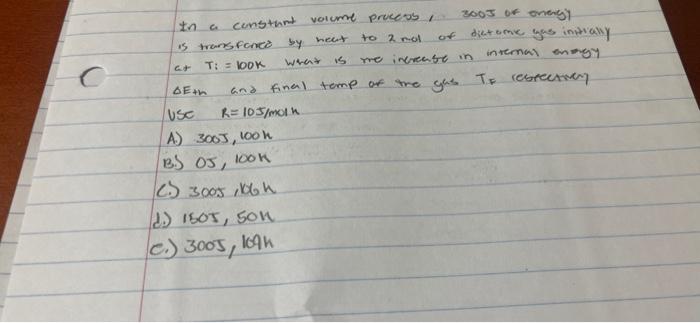 In a constant volume process, 300J of energy
is transfered by heat to 2 mol of diatomic gas initially
at Ti = 100K what is the increase in internal energy
ΔEth and final temp of the gas TF respectively
Use R=10J/mol K
A) 300J, 100K
B.) 0J, 100K
C.) 300J, 106K
d.) 150J, 50K
e.) 300J, 109K